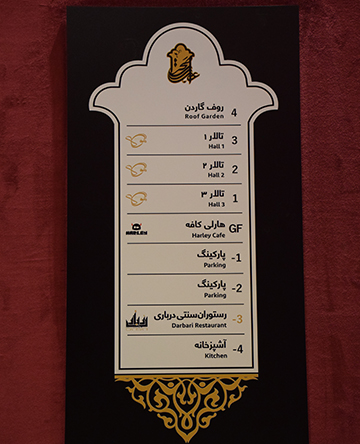 روف گاردن 4
Roof Garden
تالار ۱ 3
Hall 1
تالار ۲ 2
Hall 2
تالار ۳ 1
Hall 3
هارلی کافه GF
HARLEY
Harley Cafe
پارکینگ -1
Parking
پارکینگ -2
Parking
رستوران سنتی درباری -3
Darbari Restaurant
آشپزخانه -4
Kitchen